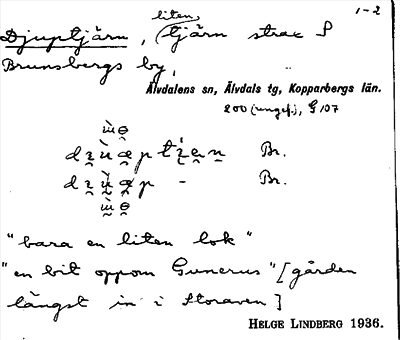 1-2
Djuptjärn, liten tjärn strax S
Brunsbergs by,
Älvdalens sn, Älvdals tg, Kopparbergs län.
200 (ungef.), G 107
Br.
Br.
"bara en liten lok"
"en bit oppom Gunerus" [gården
längst in i Storaven]
HELGE LINDBERG 1936.